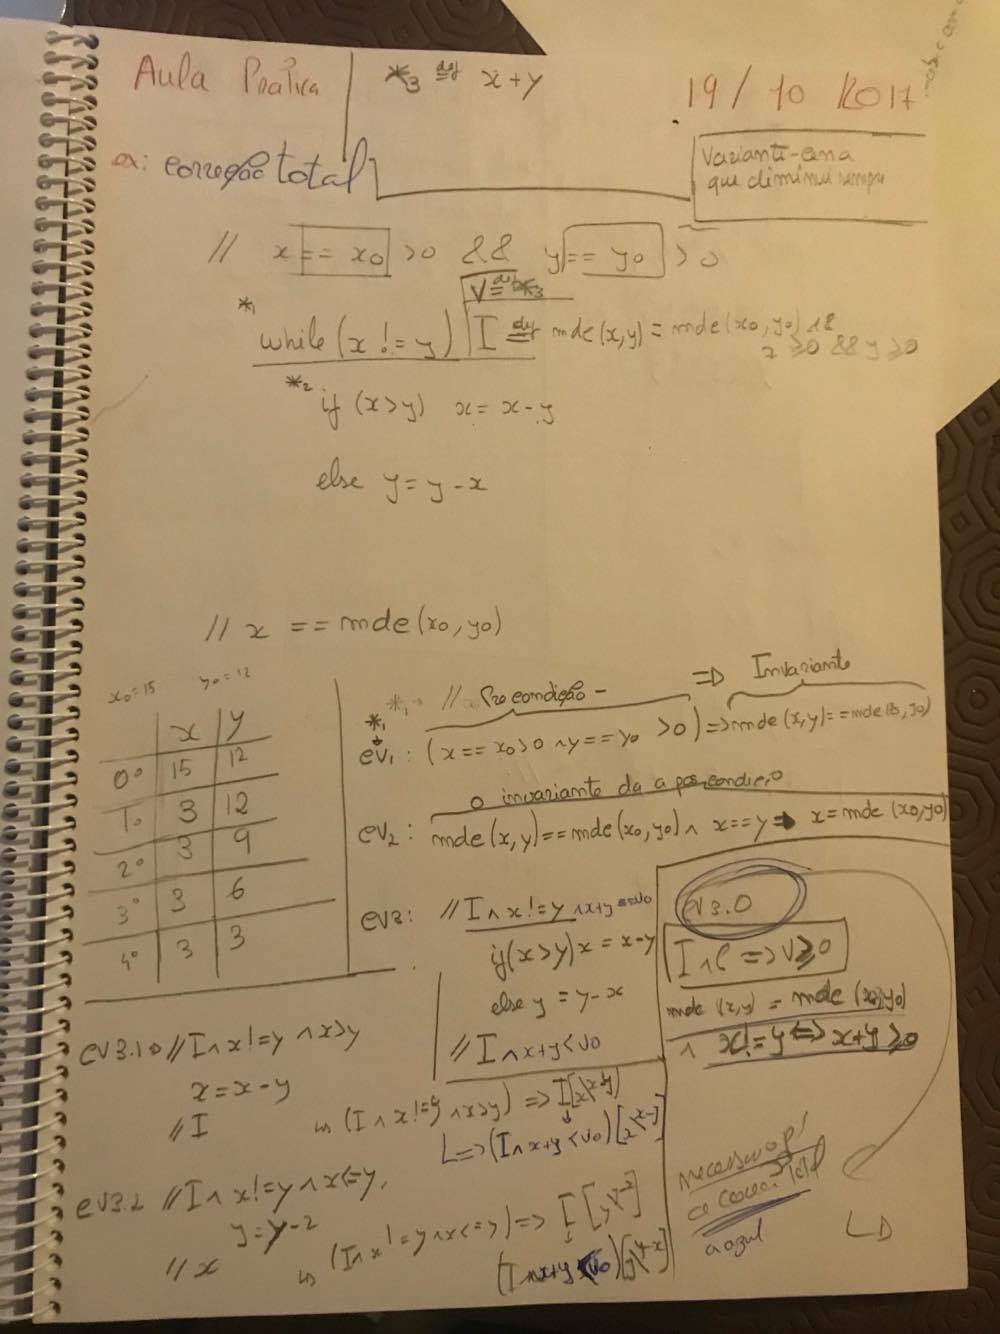 Aula Prática
*3 def= x+y
19/10/2017
ex: correção total
Variante - coisa
que diminui sempre
// x == x0 >0 && y == y0 >0
V def= *3
*1
while (x != y) I def= mdc(x,y) = mdc(x0,y0) &&
x ≥0 && y ≥0
*2
if (x>y) x = x-y
else y = y-x
// x == mdc(x0,y0)
x0=15 y0=12
x y
0º 15 12
1º 3 12
2º 3 9
3º 3 6
4º 3 3
*1 // Pre condição - => Invariante
*1
ev1: (x == x0>0 ∧ y == y0 >0) => mdc(x,y) == mdc(x0,y0)
o invariante da a pos condição
ev2: mdc(x,y) == mdc(x0,y0) ∧ x==y => x = mdc(x0,y0)
ev3: // I ∧ x != y ∧ x+y == v0
if (x>y) x = x-y
else y = y-x
// I ∧ x+y < v0
ev3.0
I ∧ C => V≥0
mdc (x,y) = mdc (x0,y0)
∧ x != y <=> x+y ≥0
ev3.1 // I ∧ x != y ∧ x>y
x = x-y
// I
(I ∧ x != y ∧ x>y) => I[x\x-y]
L => (I ∧ x+y < v0) [x\x-y]
ev3.2 // I ∧ x != y ∧ x<=y,
y = y-2
// x
(I ∧ x != y ∧ x<=y) => I [y\y-x]
(I ∧ x+y < v0) [y\y-x]
a azul